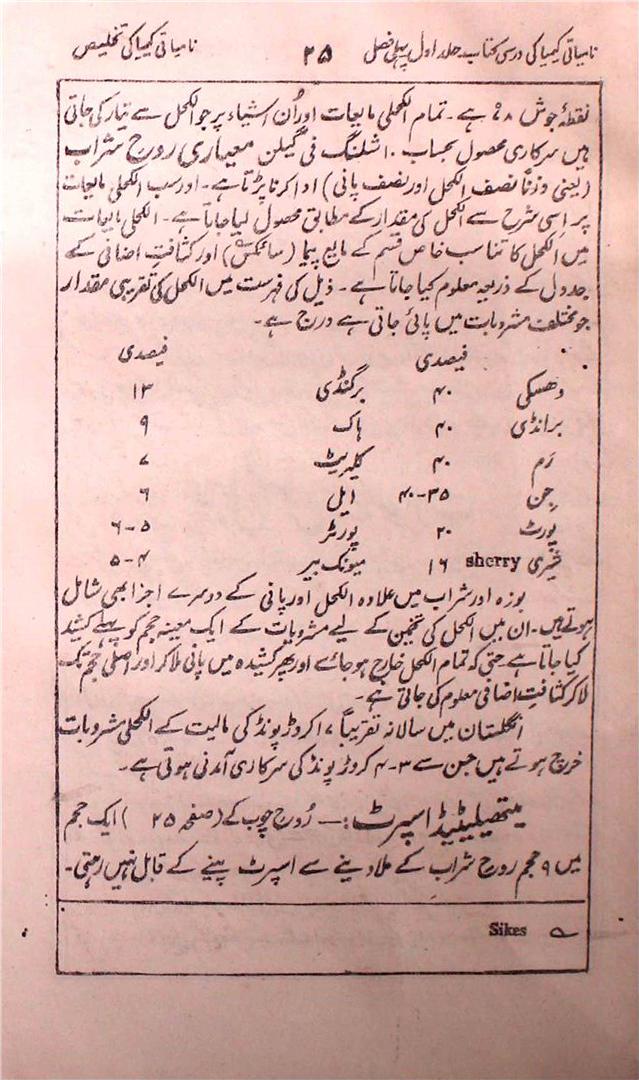 نامیاتی کیمیا کی درسی کتاب جلد اول پہلی فصل ۲۵ نامیاتی کیمیا کی تخلیص
نقطۂ جوش ۷۸° ہے۔ تمام الکحلی مایعات اور اُن اشیاء پر جو الکحل سے تیار کی جاتی
ہیں سرکاری محصول بحساب ۱۰ شلنگ فی گیلن معیاری روح شراب
(یعنی وزناً نصف الکحل اور نصف پانی) ادا کرنا پڑتا ہے۔ اور سب الکحلی مایعات
پر اِسی شرح سے الکحل کی مقدار کے مطابق محصول لیا جاتا ہے۔ الکحلی مایعات
میں الکحل کا تناسب خاص قسم کے مایع پیما (سائکس) اور کثافت اضافی کے
جدول کے ذریعہ معلوم کیا جاتا ہے۔ ذیل کی فہرست میں الکحل کی تقریبی مقدار
جو مختلف مشروبات میں پائی جاتی ہے درج ہے۔
فیصدی فیصدی
وھسکی ۴۰ برگنڈی ۱۳
برانڈی ۴۰ ہاک ۹
رَم ۴۰ کلیریٹ ۷
جِن ۳۵-۴۰ ایل ۶
پورٹ ۲۰ پورٹر ۵-۶
شیری sherry ۱۶ میونک بیر ۴-۵
بوزہ اور شراب میں علاوہ الکحل اور پانی کے دوسرے اجزا بھی شامل
ہوتے ہیں۔ ان میں الکحل کی تخمین کے لیے مشروبات کے ایک معینہ حجم کو پہلے کشید
کیا جاتا ہے حتیٰ کہ تمام الکحل خارج ہو جائے اور پھر کشیدہ میں پانی ملا کر اور اصلی حجم تک
لا کر کثافتِ اضافی معلوم کی جاتی ہے۔
انگلستان میں سالانہ تقریباً ۱۷ کروڑ پونڈ کی مالیت کے الکحلی مشروبات
خرچ ہوتے ہیں جن سے ۳-۴ کروڑ پونڈ کی سرکاری آمدنی ہوتی ہے۔
میتھیلیٹیڈ اسپرٹ :— رُوح چوب کے (صفحہ ۲۵ ) ایک حجم
میں ۹ حجم روح شراب کے ملا دینے سے اسپرٹ پینے کے قابل نہیں رہتی۔
Sikes